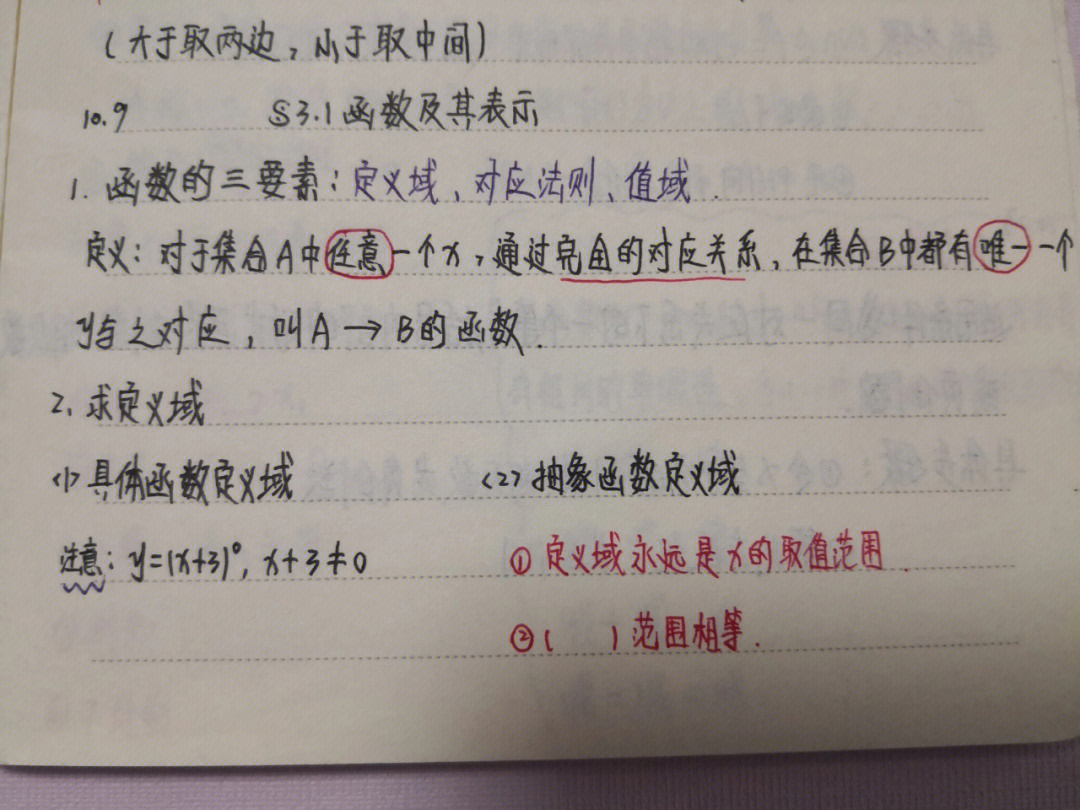 (大于取两边,小于取中间)
10.9 §3.1 函数及其表示
1. 函数的三要素:定义域、对应法则、值域.
定义:对于集合A中任意一个x,通过完全的对应关系,在集合B中都有唯一一个
y与之对应,叫A→B的函数.
2. 求定义域
<1>具体函数定义域 <2>抽象函数定义域
注意:y=(x+3)⁰, x+3≠0 ①定义域永远是x的取值范围.
②( )范围相等.